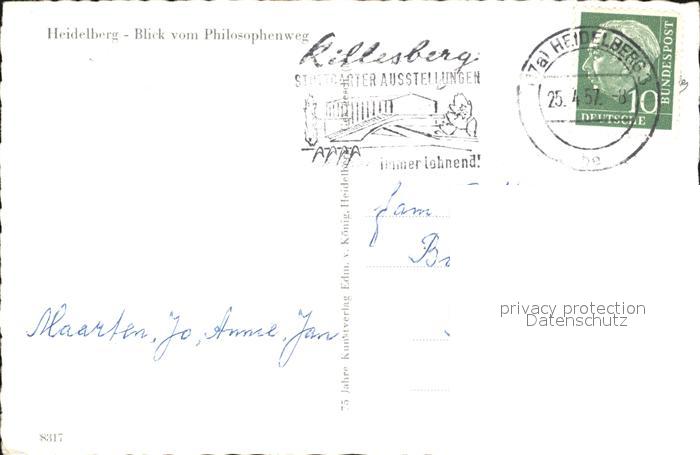 Heidelberg - Blick vom Philosophenweg
Killesberg
STUTTGARTER AUSSTELLUNGEN
immer lohnend!
(17a) HEIDELBERG
25. 4. 57. -8
10
DEUTSCHE
BUNDESPOST
Fam
Br
75 Jahre Kunstverlag Edm. v. König, Heidelberg
privacy protection
Datenschutz
Maarten, Jo, Annie, Jan
8317